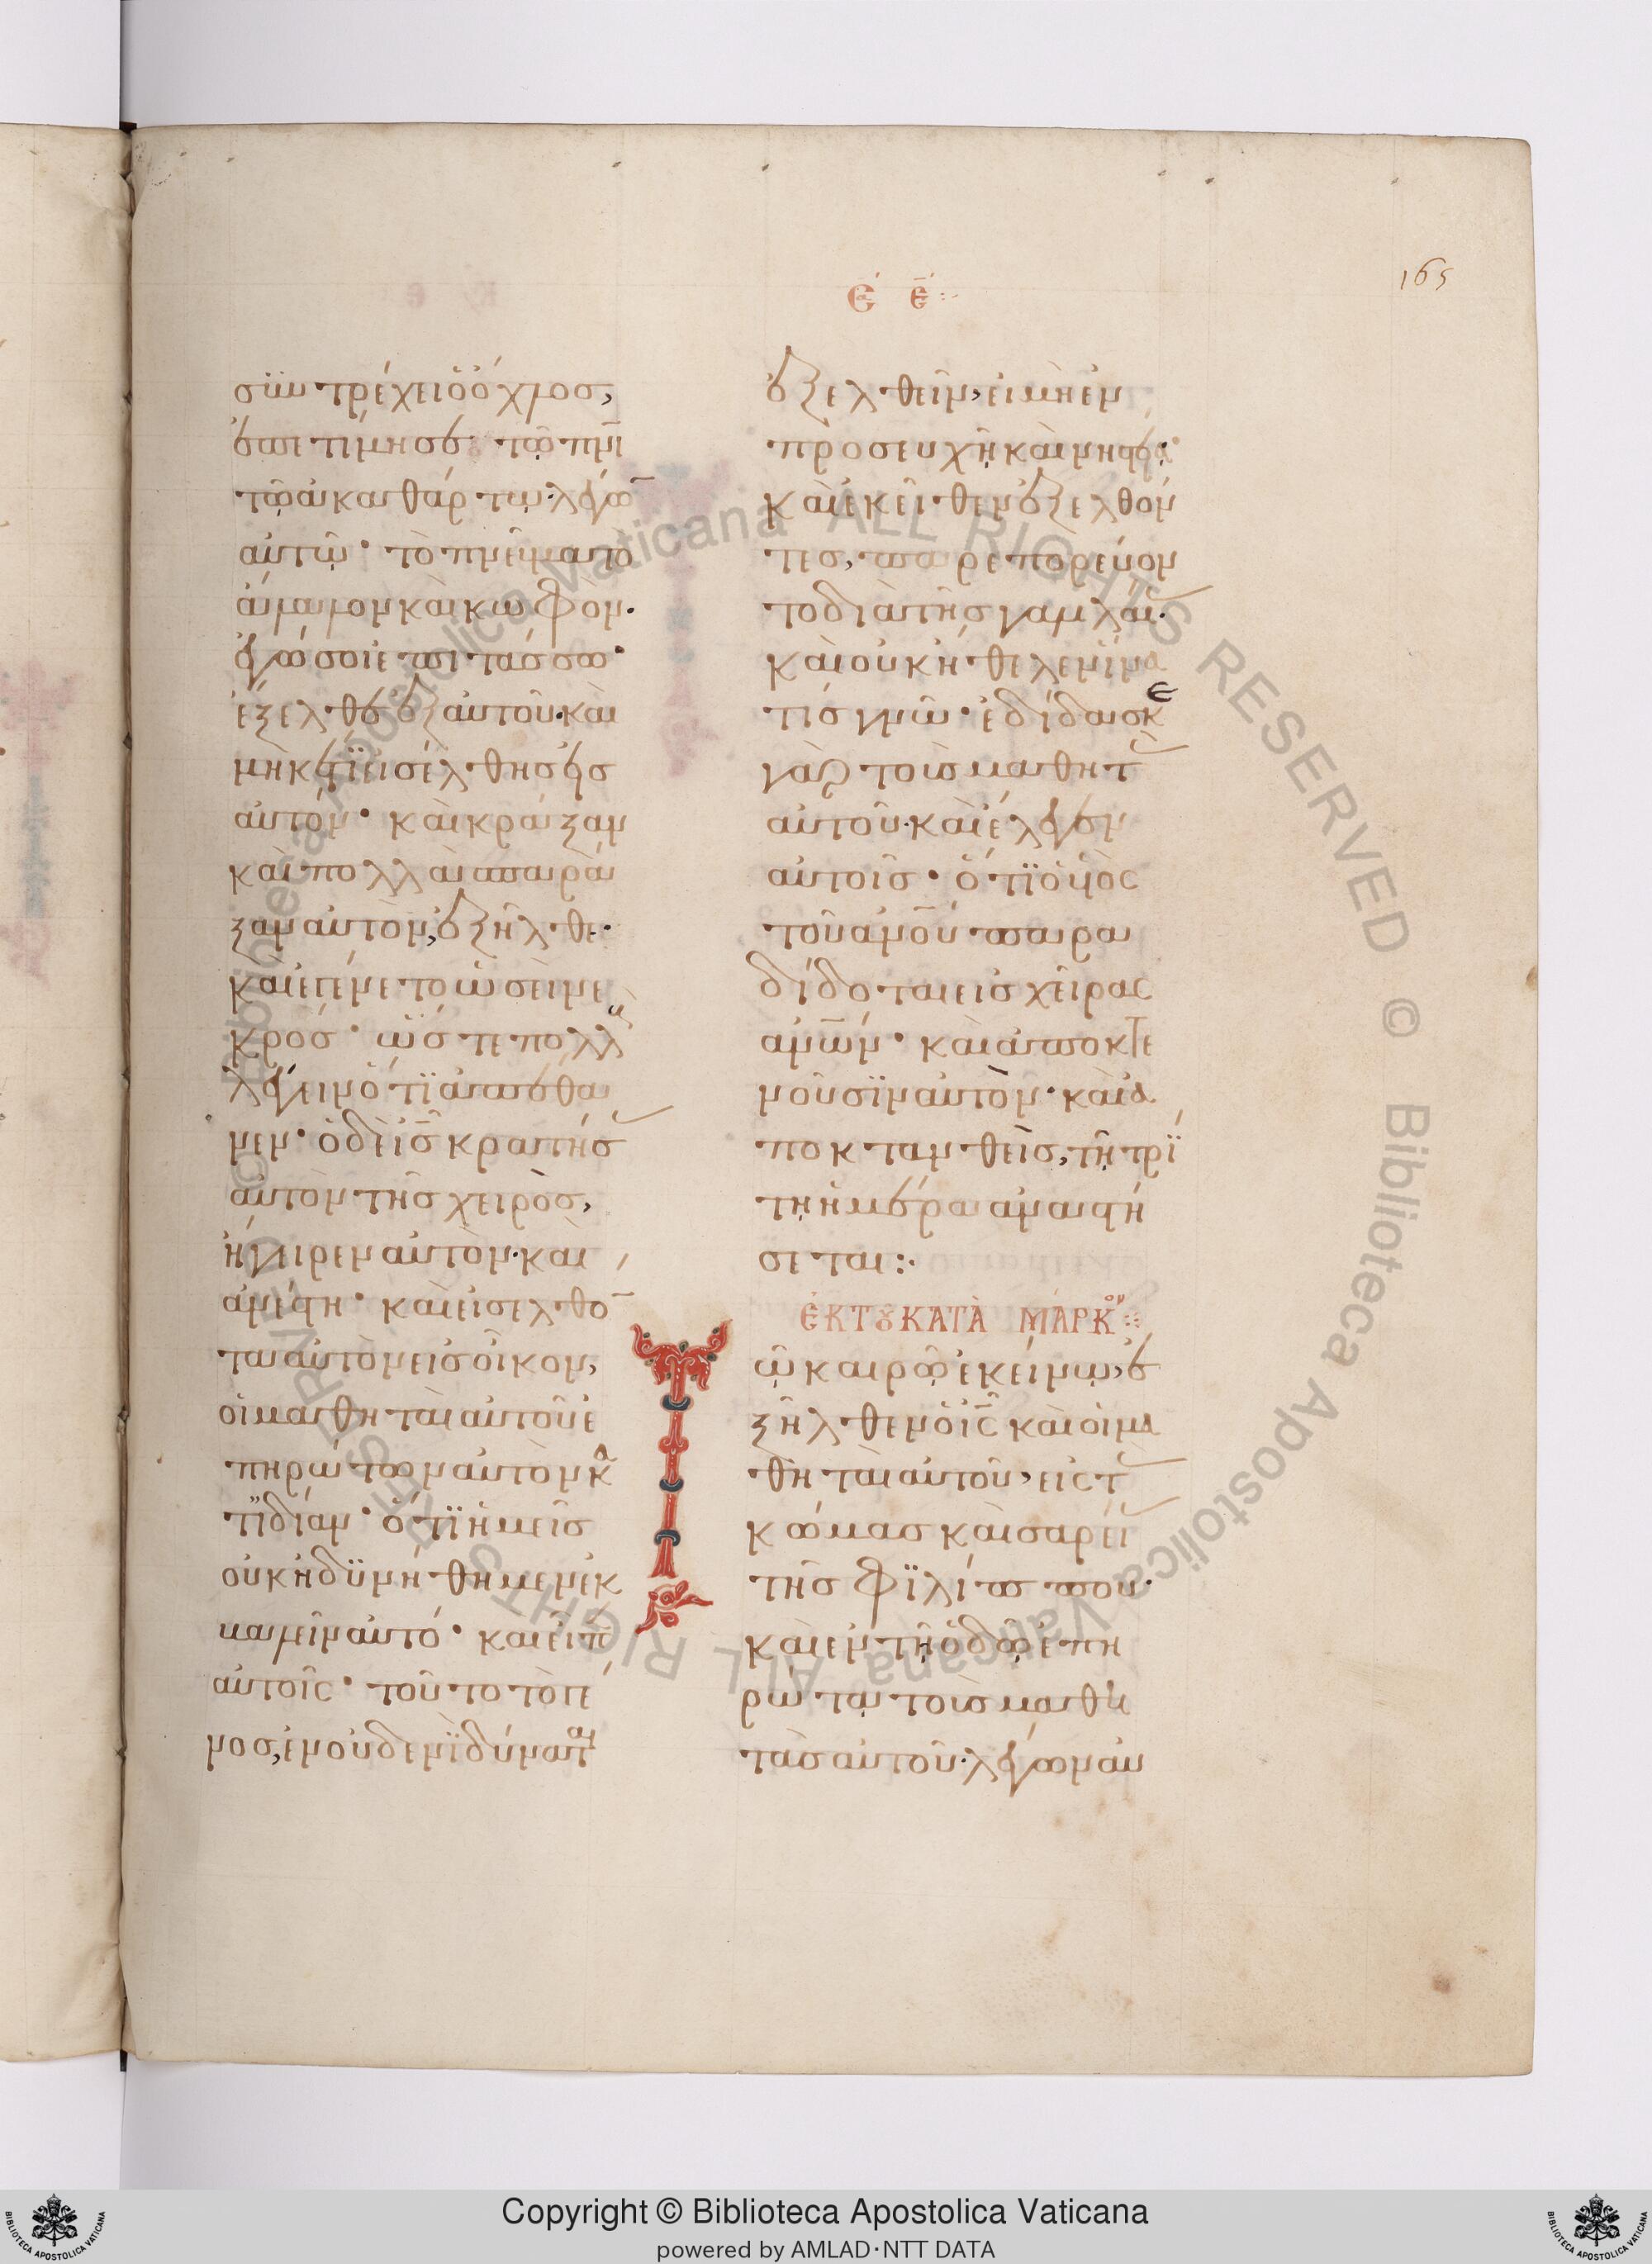 165
ε͞ ε͞
συντρέχει ὁ ὄχλοσ,
ἐπετίμησε τῶ πν͞ι
τῶ ἀκαθάρτω· λέγω͞
αὐτῶ· τὸ πνεῦμα τὸ
ἄλαλον καὶ κωφὸν·
ἐγώ σοι ἐπιτάσσω·
ἔξελθε ἐξ αὐτοῦ· καὶ
μηκέτϊ εἰσέλθησ εἰσ
αὐτόν· καὶ κράξαν
καὶ πολλὰ σπαρά
ξαν αὐτὸν, ἐξῆλθε·
καὶ ἐγένετο ὡσεὶ νε
κρόσ· ὥστε πολλ
λέγειν ὅτϊ ἀπέθα
νεν· ὁ δὲ ι͞σ κρατήσ
αὐτὸν τῆσ χειρὸσ,
ἤγειρεν αὐτὸν· καὶ
ἀνέστη· καὶ εἰσελθό͞
τα αὐτὸν εἰσ οἶκον,
οἱ μαθηταὶ αὐτοῦ ἐ
πηρώτων αὐτὸν κα
τϊδίαν· ὅτϊ ἡμεῖσ
οὐκ ἠδϋνήθημεν ἐκ
βαλεῖν αὐτό· καὶ εἶπ
αὐτοῖς· τοῦτο τὸ γέ
νοσ, ἐν οὐδενϊ δύναται
ἐξελθεῖν, εἰ μὴ ἐν
προσευχῆ καὶ νηστεία·
Καὶ ἐκεῖθεν ἐξελθόν
τεσ, παρεπορεύον
το διὰ τῆσ γαλιλαί·
καὶ οὐκ ἤθελεν ἵνα
τίσ γνῶ· ἐδίδασκε
γὰρ τοὺσ μαθητ
αὐτοῦ· καὶ ἔλεγεν
αὐτοῖσ· ὅτϊ ὁ υἱὸς
τοῦ ἀν͞ου παρα
δίδοται εἰσ χεῖρας
ἀν͞ων· καὶ ἀποκτε
νοῦσϊν αὐτὸν· καὶ ἀ
ποκτανθεὶσ, τῆ τρί
τη ἡμέρα ἀναστή
σεται:·
ἐΚ ΤΟΥ ΚΑΤᾺ ΜΆΡΚΟΝ
Τῶ καιρῶ ἐκείνω, ἐ
ξῆλθεν ὁ ι͞ς καὶ οἱ μα
θηταὶ αὐτοῦ, εἰς τ
κώμασ καισαρεί
τῆσ φϊλίππου·
καὶ ἐν τῆ ὁδῶ ἐπη
ρώτα τοὺσ μαθη
τὰσ αὐτοῦ· λέγων αὐ
Biblioteca Apostolica Vaticana ALL RIGHTS RESERVED © Biblioteca Apostolica Vaticana ALL RIGHTS RESERVED ©
Copyright © Biblioteca Apostolica Vaticana
powered by AMLAD·NTT DATA
BIBLIOTECA APOSTOLICA VATICANA
BIBLIOTECA APOSTOLICA VATICANA